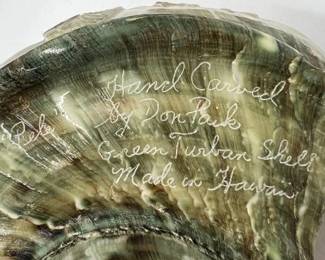 Hand Carved
by Don Paik
Pele
Green Turban Shell
Made in Hawaii